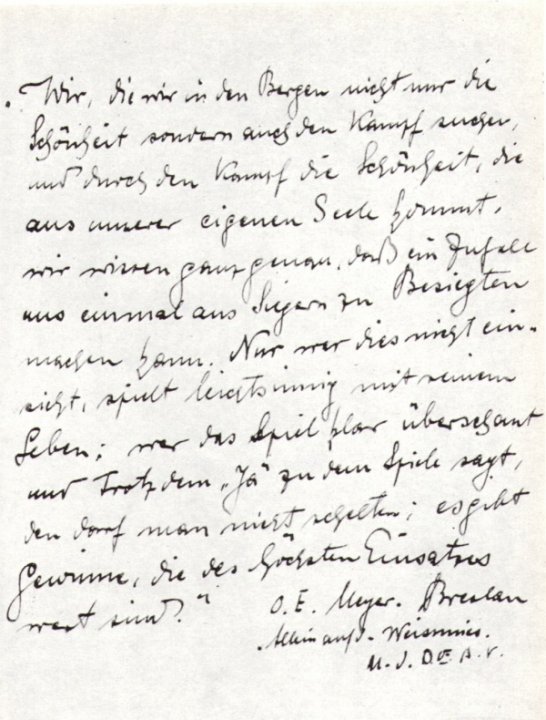 „Wir, die wir in den Bergen nicht nur die
Schönheit sondern auch den Kampf suchen,
und durch den Kampf die Schönheit, die
aus unserer eigenen Seele kommt,
wir wissen ganz genau, daß ein Zufall
uns einmal aus Siegern zu Besiegten
machen kann. Nur wer dies nicht ein-
sieht, spielt leichtsinnig mit seinem
Leben; wer das Spiel klar überschaut
und trotzdem „Ja" zu dem Spiele sagt,
den darf man nicht schelten; es gibt
Gewinne, die des höchsten Einsatzes
wert sind."
O. E. Meyer. Breslau
Allein auf d. Weissmies.
D.Ö.A.V.